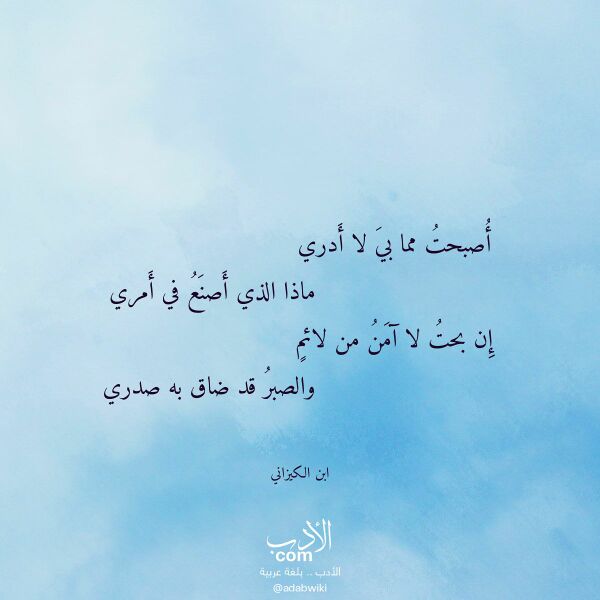 أُصبحتُ مما بيَ لا أَدري
ماذا الذي أَصنَعُ في أَمري
إِن بحتُ لا آمَنُ من لائمٍ
والصبرُ قد ضاق به صدري
ابن الكيزاني
الأدب
com
الأدب .. بلغة عربية
@adabwiki